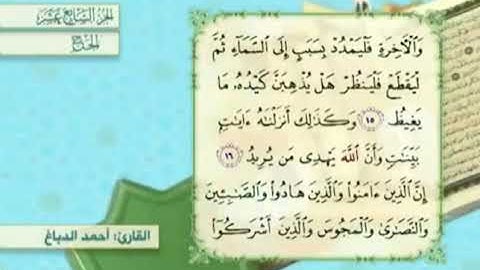 الجزء السابع عشر
الحج
وَٱلْـَٔاخِرَةِ فَلْيَمْدُدْ بِسَبَبٍ إِلَى ٱلسَّمَآءِ ثُمَّ
لْيَقْطَعْ فَلْيَنظُرْ هَلْ يُذْهِبَنَّ كَيْدُهُۥ مَا
يَغِيظُ ١٥ وَكَذَٰلِكَ أَنزَلْنَٰهُ ءَايَٰتٍۭ
بَيِّنَٰتٍ وَأَنَّ ٱللَّهَ يَهْدِى مَن يُرِيدُ ١٦
إِنَّ ٱلَّذِينَ ءَامَنُوا۟ وَٱلَّذِينَ هَادُوا۟ وَٱلصَّٰبِـِٔينَ
وَٱلنَّصَٰرَىٰ وَٱلْمَجُوسَ وَٱلَّذِينَ أَشْرَكُوٓا۟
القارئ: أحمد الدباغ